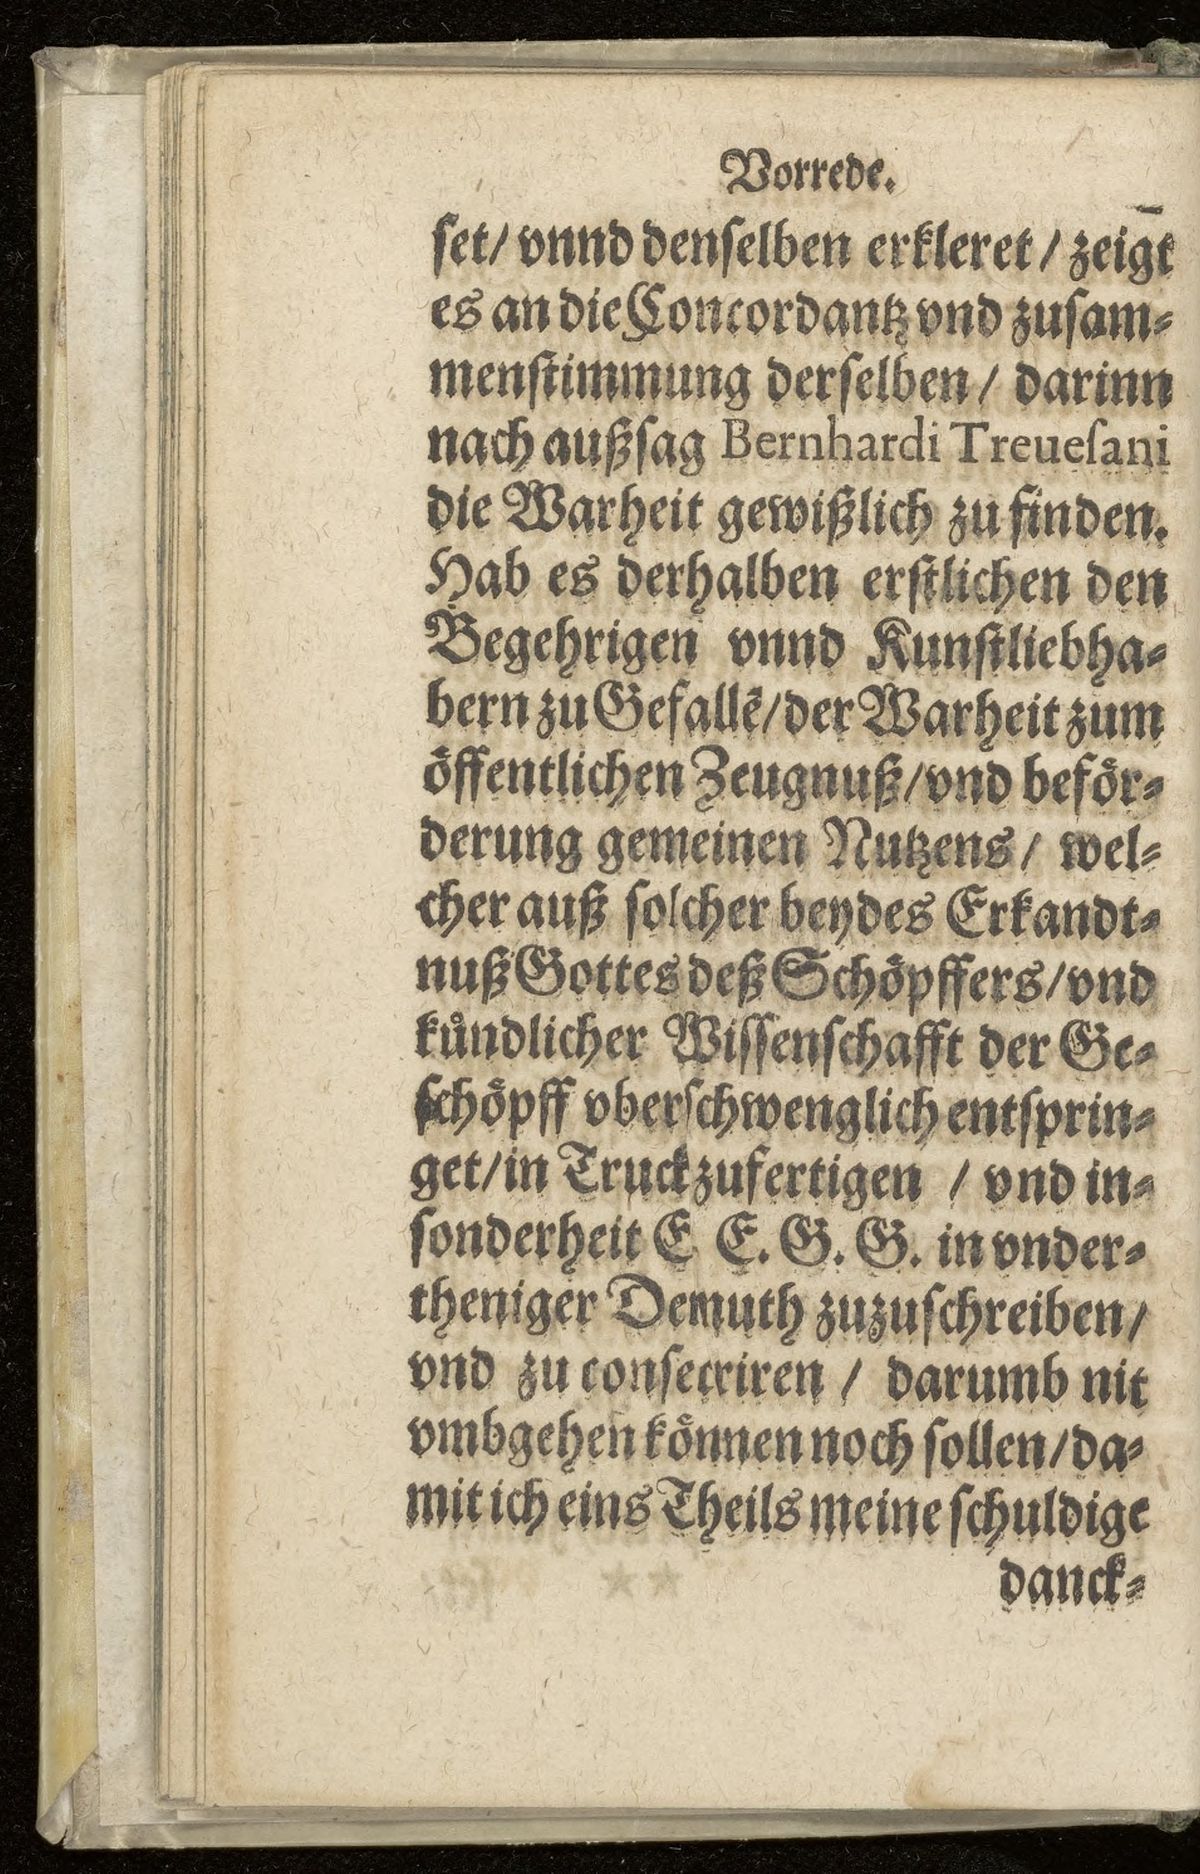 Vorrede.
ſet/ vnnd denſelben erkleret / zeigt
es an die Concordantz vnd zuſam⸗
menſtimmung derſelben / darinn
nach außſag Bernhardi Treueſani
die Warheit gewißlich zu finden.
Hab es derhalben erſtlichen den
Begehrigen vnnd Kunſtliebha⸗
bern zu Gefallē/ der Warheit zum
oͤffentlichen Zeugnuß/ vnd befoͤr⸗
derung gemeinen Nutzens / wel⸗
cher auß ſolcher beydes Erkandt⸗
nuß Gottes deß Schoͤpffers/ vnd
kuͦndlicher Wiſſenſchafft der Ge⸗
ſchoͤpff vberſchwenglich entſprin⸗
get/ in Truck zufertigen / vnd in⸗
ſonderheit E E. G. G. in vnder⸗
theniger Demuth zuzuſchreiben/
vnd zu conſecriren / darumb nit
vmbgehen koͤnnen noch ſollen/ da⸗
mit ich eins Theils meine ſchuldige
danck⸗